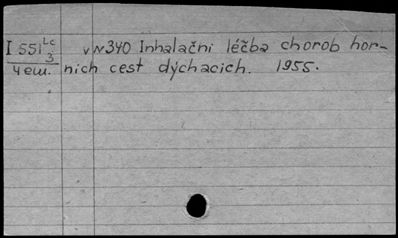 I 551 Lc v N340 Inhalační léčba chorob hor-
3
4 em. nich cest dýchacich. 1955.